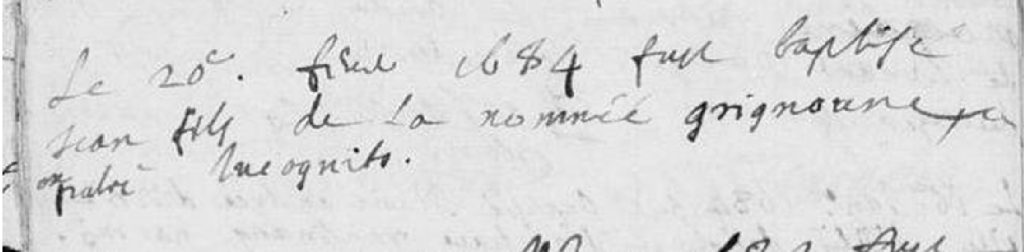 Le 20e. fiur 1684 fust baptise
Jean fils de La nommée grignonne ex
patre Incognito.